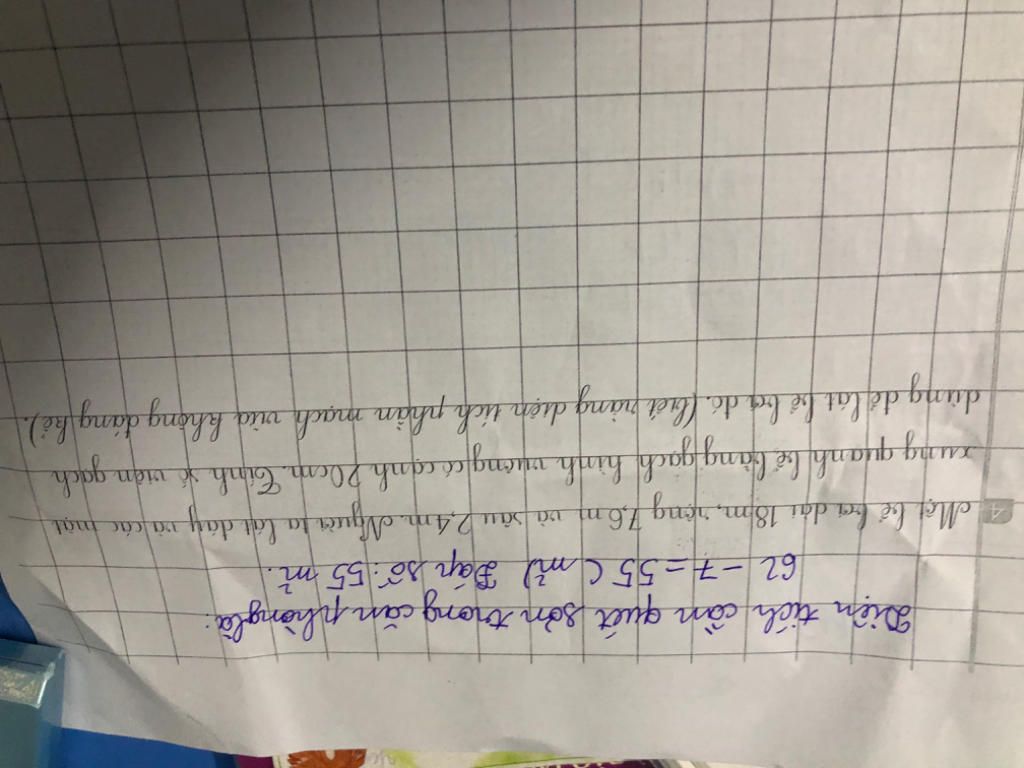 Diện tích cần quét sơn trong căn phòng là:
62 - 7 = 55 ( m²) Đáp số: 55 m².
4 Một bể bơi dài 18m, rộng 7,6 m và sâu 2,4m. Người ta lát đáy và các mặt
xung quanh bể bằng gạch hình vuông có cạnh 20cm. Tính số viên gạch
dùng để lát bể bơi đó. (biết rằng diện tích phần mạch vữa không đáng kể).